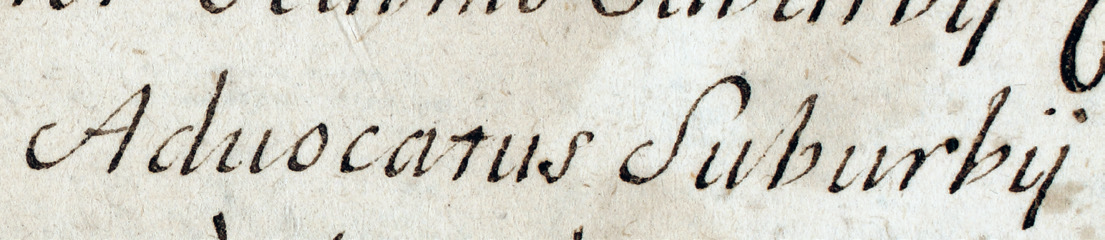 Suburbij
Aduocatus Suburbij